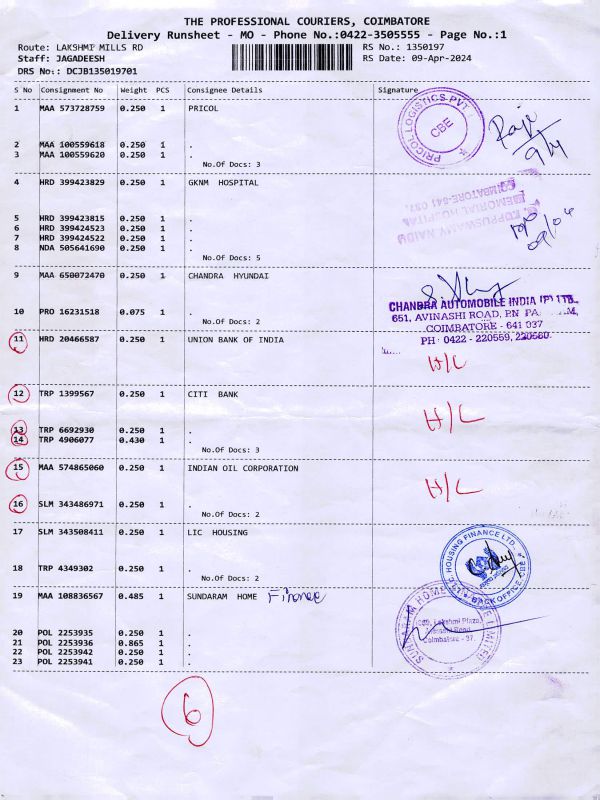 THE PROFESSIONAL COURIERS, COIMBATORE
Delivery Runsheet - MO - Phone No.:0422-3505555 - Page No.:1
Route: LAKSHMI MILLS RD RS No.: 1350197
Staff: JAGADEESH RS Date: 09-Apr-2024
DRS No.: DCJB135019701
S No Consignment No Weight PCS Consignee Details Signature
1 MAA 573728759 0.250 1 PRICOL
PRICOL LOGISTICS PVT
CBE
Raji
9/4
2 MAA 100559618 0.250 1 .
3 MAA 100559620 0.250 1 .
No.Of Docs: 3
4 HRD 399423829 0.250 1 GKNM HOSPITAL
KUPPUSWAMY NAIDU
MEMORIAL HOSPITAL
COIMBATORE-641 037.
09/04
5 HRD 399423815 0.250 1 .
6 HRD 399424523 0.250 1 .
7 HRD 399424522 0.250 1 .
8 NDA 505641690 0.250 1 .
No.Of Docs: 5
9 MAA 650072470 0.250 1 CHANDRA HYUNDAI
CHANDRA AUTOMOBILE INDIA (P) LTD.,
651, AVINASHI ROAD, P.N PA M,
COIMBATORE - 641 037
PH : 0422 - 220559, 220580
10 PRO 16231518 0.075 1 .
No.Of Docs: 2
11 HRD 20466587 0.250 1 UNION BANK OF INDIA
H/C
12 TRP 1399567 0.250 1 CITI BANK
H/C
13 TRP 6692930 0.250 1 .
14 TRP 4906077 0.430 1 .
No.Of Docs: 3
15 MAA 574865060 0.250 1 INDIAN OIL CORPORATION
H/C
16 SLM 343486971 0.250 1 .
No.Of Docs: 2
17 SLM 343508411 0.250 1 LIC HOUSING
HOUSING FINANCE LTD.
BACK OFFICE
18 TRP 4349302 0.250 1 .
No.Of Docs: 2
19 MAA 108836567 0.485 1 SUNDARAM HOME Finance
SUNDARAM HOME FINANCE LIMITED
Lakshmi Plaza,
Avinashi Road,
Coimbatore - 37.
20 POL 2253935 0.250 1 .
21 POL 2253936 0.865 1 .
22 POL 2253942 0.250 1 .
23 POL 2253941 0.250 1 .
6